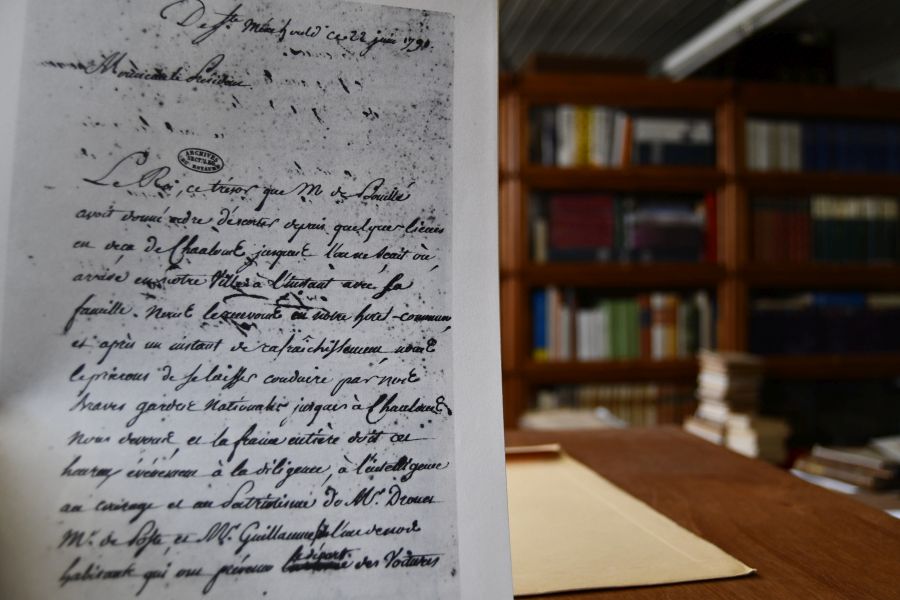 De Ste. Ménéhould ce 22 juin 1791.
Monsieur le Président
ARCHIVES
SECT. LEG.
DU ROYAUME
Le Roi, ce trésor que M. de Bouillé
avoit donné ordre d'escorter depuis quelques lieues
en deça de Chaalons jusques l'on ne scait où,
arrive en notre Ville à l'instant avec sa
famille. Nous le recevons en notre hotel-commun,
et après un instant de rafraîchissement nous
le prierons de se laisser conduire par nos
braves gardes Nationales jusques à Chaalons
nous devons et la france entière doit cet
heureux événement à la diligence, à l'intelligence
au courage et au Patriotisme de Mr. Drouet
Mr. de Poste, et Mr. Guillaume l'un de nos
habitants qui ont prévenu le départ des Voitures